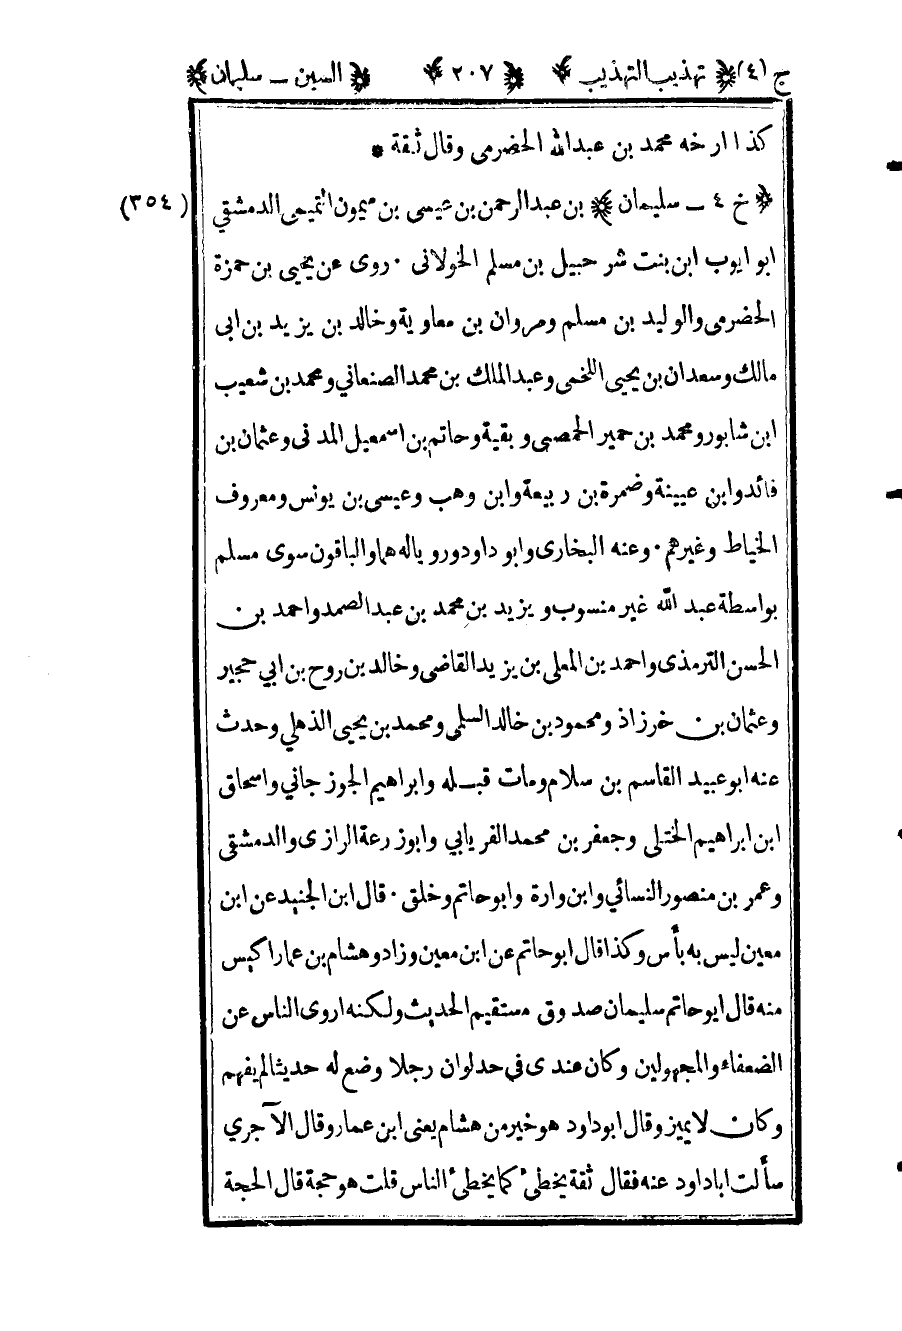 ج (٤) ﴿ تهذيب التهذيب ﴾ ﴿ ٢٠٧ ﴾ ﴿ السين ــ سليمان ﴾
كذا ارخه محمد بن عبدالله الحضرمى وقال ثقة *
﴿ خ ٤ ــ سليمان ﴾ بن عبدالرحمن بن عيسى بن ميمون التميمى الدمشقي (٣٥٤)
ابو ايوب ابن بنت شر حبيل بن مسلم الخولانى ٠ روى عن يحيى بن حمزة
الحضرمى والوليد بن مسلم ومروان بن معاوية وخالد بن يزيد بن ابى
مالك وسعدان بن يحيى اللخمى وعبد الملك بن محمد الصنعاني ومحمد بن شعيب
ابن شابور ومحمد بن حمير الحمصى و بقية وحاتم بن اسمعيل المدنى وعثمان بن
فائد وابن عيينة وضمرة بن ربيعة وابن وهب وعيسى بن يونس ومعروف
الخياط وغيرهم ٠ وعنه البخارى وابو داود ورويا له هما والباقون سوى مسلم
بواسطة عبد الله غير منسوب و يزيد بن محمد بن عبد الصمد واحمد بن
الحسن الترمذى واحمد بن المعلى بن يزيد القاضى وخالد بن روح بن ابي حجير
وعثمان بن خرزاذ ومحمود بن خالد السلمى ومحمد بن يحيى الذهلي وحدث
عنه ابو عبيد القاسم بن سلام ومات قبله وابراهيم الجوزجاني واسحاق
ابن ابراهيم الختلى وجعفر بن محمد الفريابي وابوزرعة الرازى والدمشقى
وعمر بن منصور النسائي وابن وارة وابو حاتم وخلق ٠ قال ابن الجنيد عن ابن
معين ليس به بأس وكذا قال ابو حاتم عن ابن معين وزاد وهشام بن عمار اكيس
منه قال ابو حاتم سليمان صدوق مستقيم الحديث ولكنه اروى الناس عن
الضعفاء والمجهولين وكان عندى في حد لو ان رجلا وضع له حديثا لم يفهم
وكان لا يميز وقال ابوداود هو خير من هشام يعنى ابن عمار وقال الآجري
سألت اباداود عنه فقال ثقة يخطئ كما يخطئ الناس قلت هو حجة قال الحجة